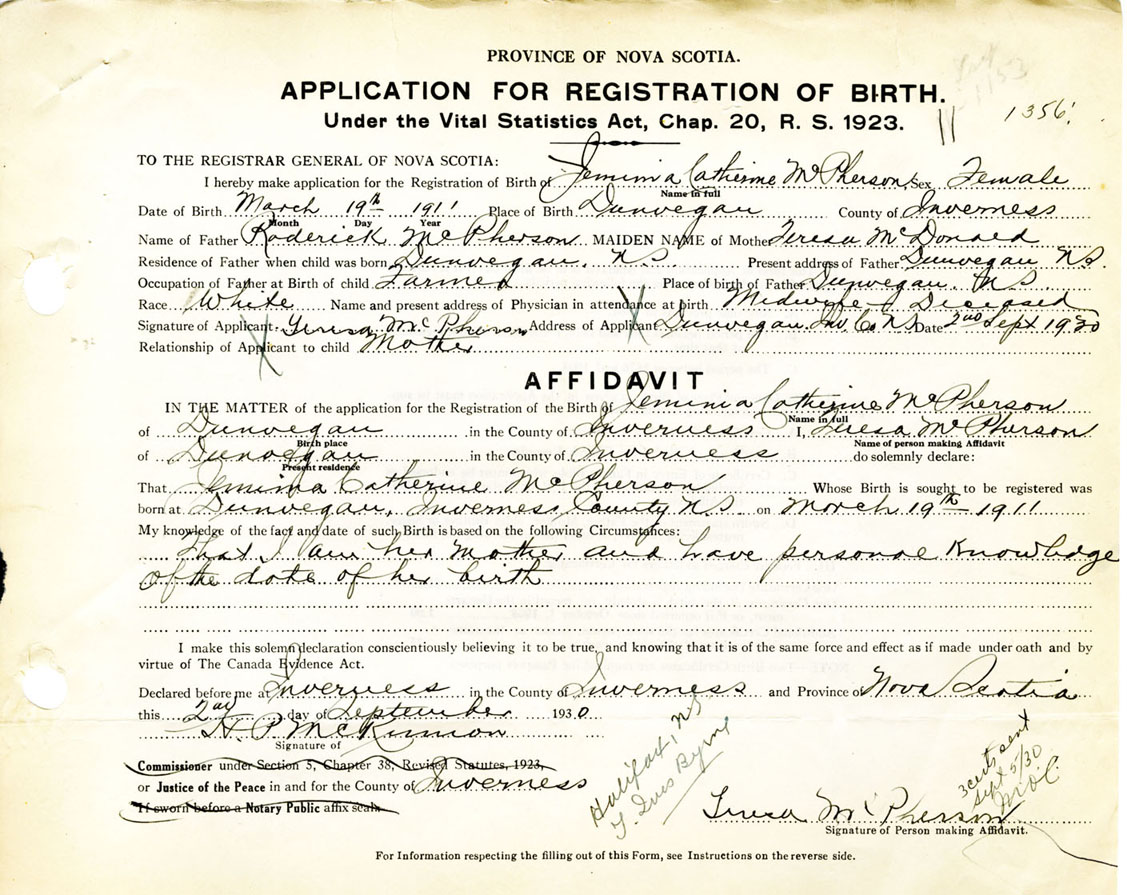 PROVINCE OF NOVA SCOTIA.
APPLICATION FOR REGISTRATION OF BIRTH.
Under the Vital Statistics Act, Chap. 20, R. S. 1923.
1356
TO THE REGISTRAR GENERAL OF NOVA SCOTIA:
I hereby make application for the Registration of Birth of Jemima Catherine McPherson Sex Female
Name in full
Date of Birth March 19th 1911 Place of Birth Dunvegan County of Inverness
Month Day Year
Name of Father Roderick McPherson MAIDEN NAME of Mother Teresa McDonald
Residence of Father when child was born Dunvegan, N.S. Present address of Father Dunvegan N.S.
Occupation of Father at Birth of child Farmer Place of birth of Father Dunvegan N.S.
Race White Name and present address of Physician in attendance at birth Midwife Deceased
Signature of Applicant Teresa McPherson Address of Applicant Dunvegan, Inv. Co. N.S. Date 2nd Sept 1930
Relationship of Applicant to child Mother
AFFIDAVIT
IN THE MATTER of the application for the Registration of the Birth of Jemimia Catherine McPherson
Name in full
of Dunvegan in the County of Inverness I, Teresa McPherson
Birth place Name of person making Affidavit
of Dunvegan in the County of Inverness do solemnly declare:
Present residence
That Jemima Catherine McPherson Whose Birth is sought to be registered was
born at Dunvegan, Inverness County N.S. on March 19th 1911
My knowledge of the fact and date of such Birth is based on the following Circumstances:
that I am her Mother and have personal knowledge
of the date of her birth
I make this solemn declaration conscientiously believing it to be true, and knowing that it is of the same force and effect as if made under oath and by
virtue of The Canada Evidence Act.
Declared before me at Inverness in the County of Inverness and Province of Nova Scotia
this 2nd day of September 1930
H P McKinnon
Signature of
Commissioner under Section 5, Chapter 38, Revised Statutes, 1923,
or Justice of the Peace in and for the County of Inverness
If sworn before a Notary Public affix seal.
Halifax, NS
3 cents sent
Sept 5/30
Teresa McPherson
Signature of Person making Affidavit.
For Information respecting the filling out of this Form, see Instructions on the reverse side.